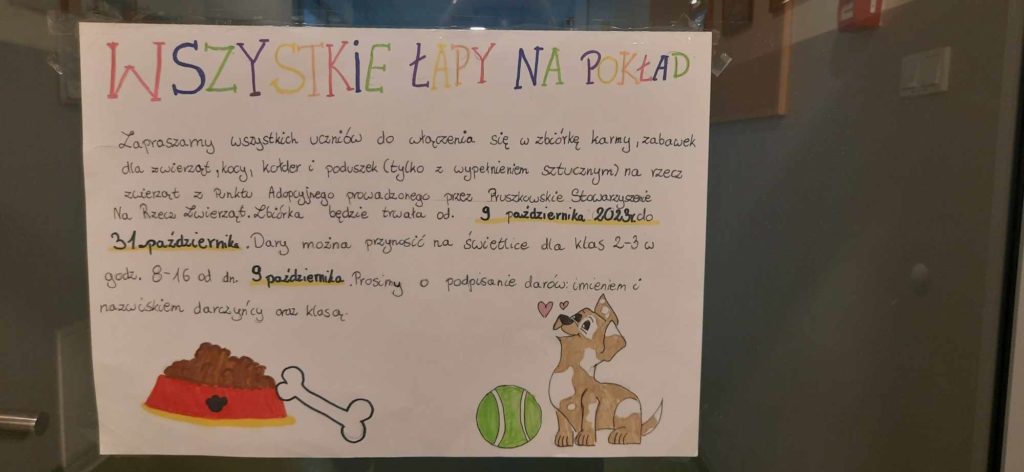 WSZYSTKIE ŁAPY NA POKŁAD
Zapraszamy wszystkich uczniów do włączenia się w zbiórkę karmy, zabawek
dla zwierząt, kocy, kołder i poduszek (tylko z wypełnieniem sztucznym) na rzecz
zwierząt z Punktu Adopcyjnego prowadzonego przez Pruszkowskie Stowarzyszenie
Na Rzecz Zwierząt. Zbiórka będzie trwała od. 9 października 2023r. do
31 października. Dary można przynosić na świetlice dla klas 2-3 w
godz. 8-16 od dn. 9 października. Prosimy o podpisanie darów: imieniem i
nazwiskiem darczyńcy oraz klasą.